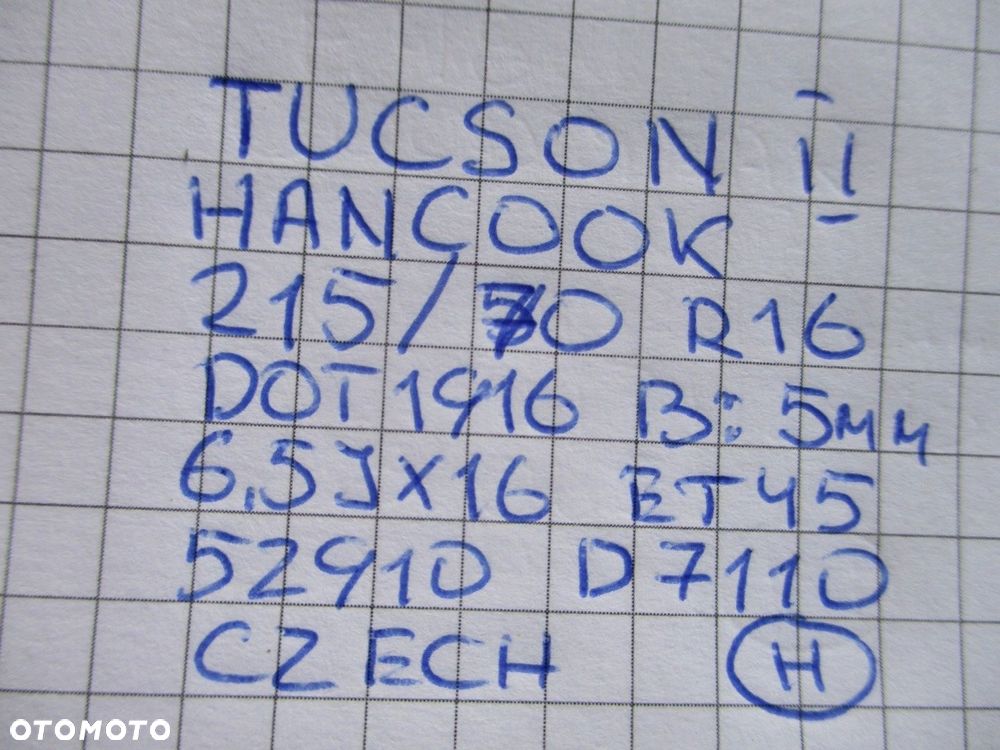 TUCSON II
HANCOOK
215/70 R16
DOT1916 B: 5MM
6.5JX16 ET45
52910 D7110
CZECH H
OTOMOTO